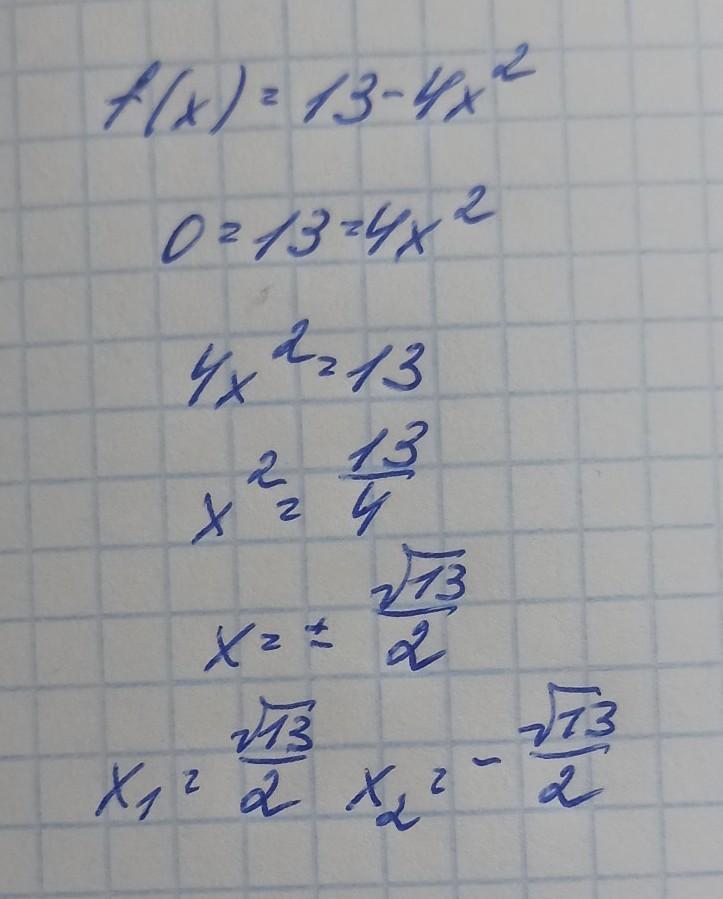 f(x) = 13 - 4x²
0 = 13 = 4x²
4x² = 13
x² = 13/4
x = ± √13/2
x₁ = √13/2 x₂ = - √13/2